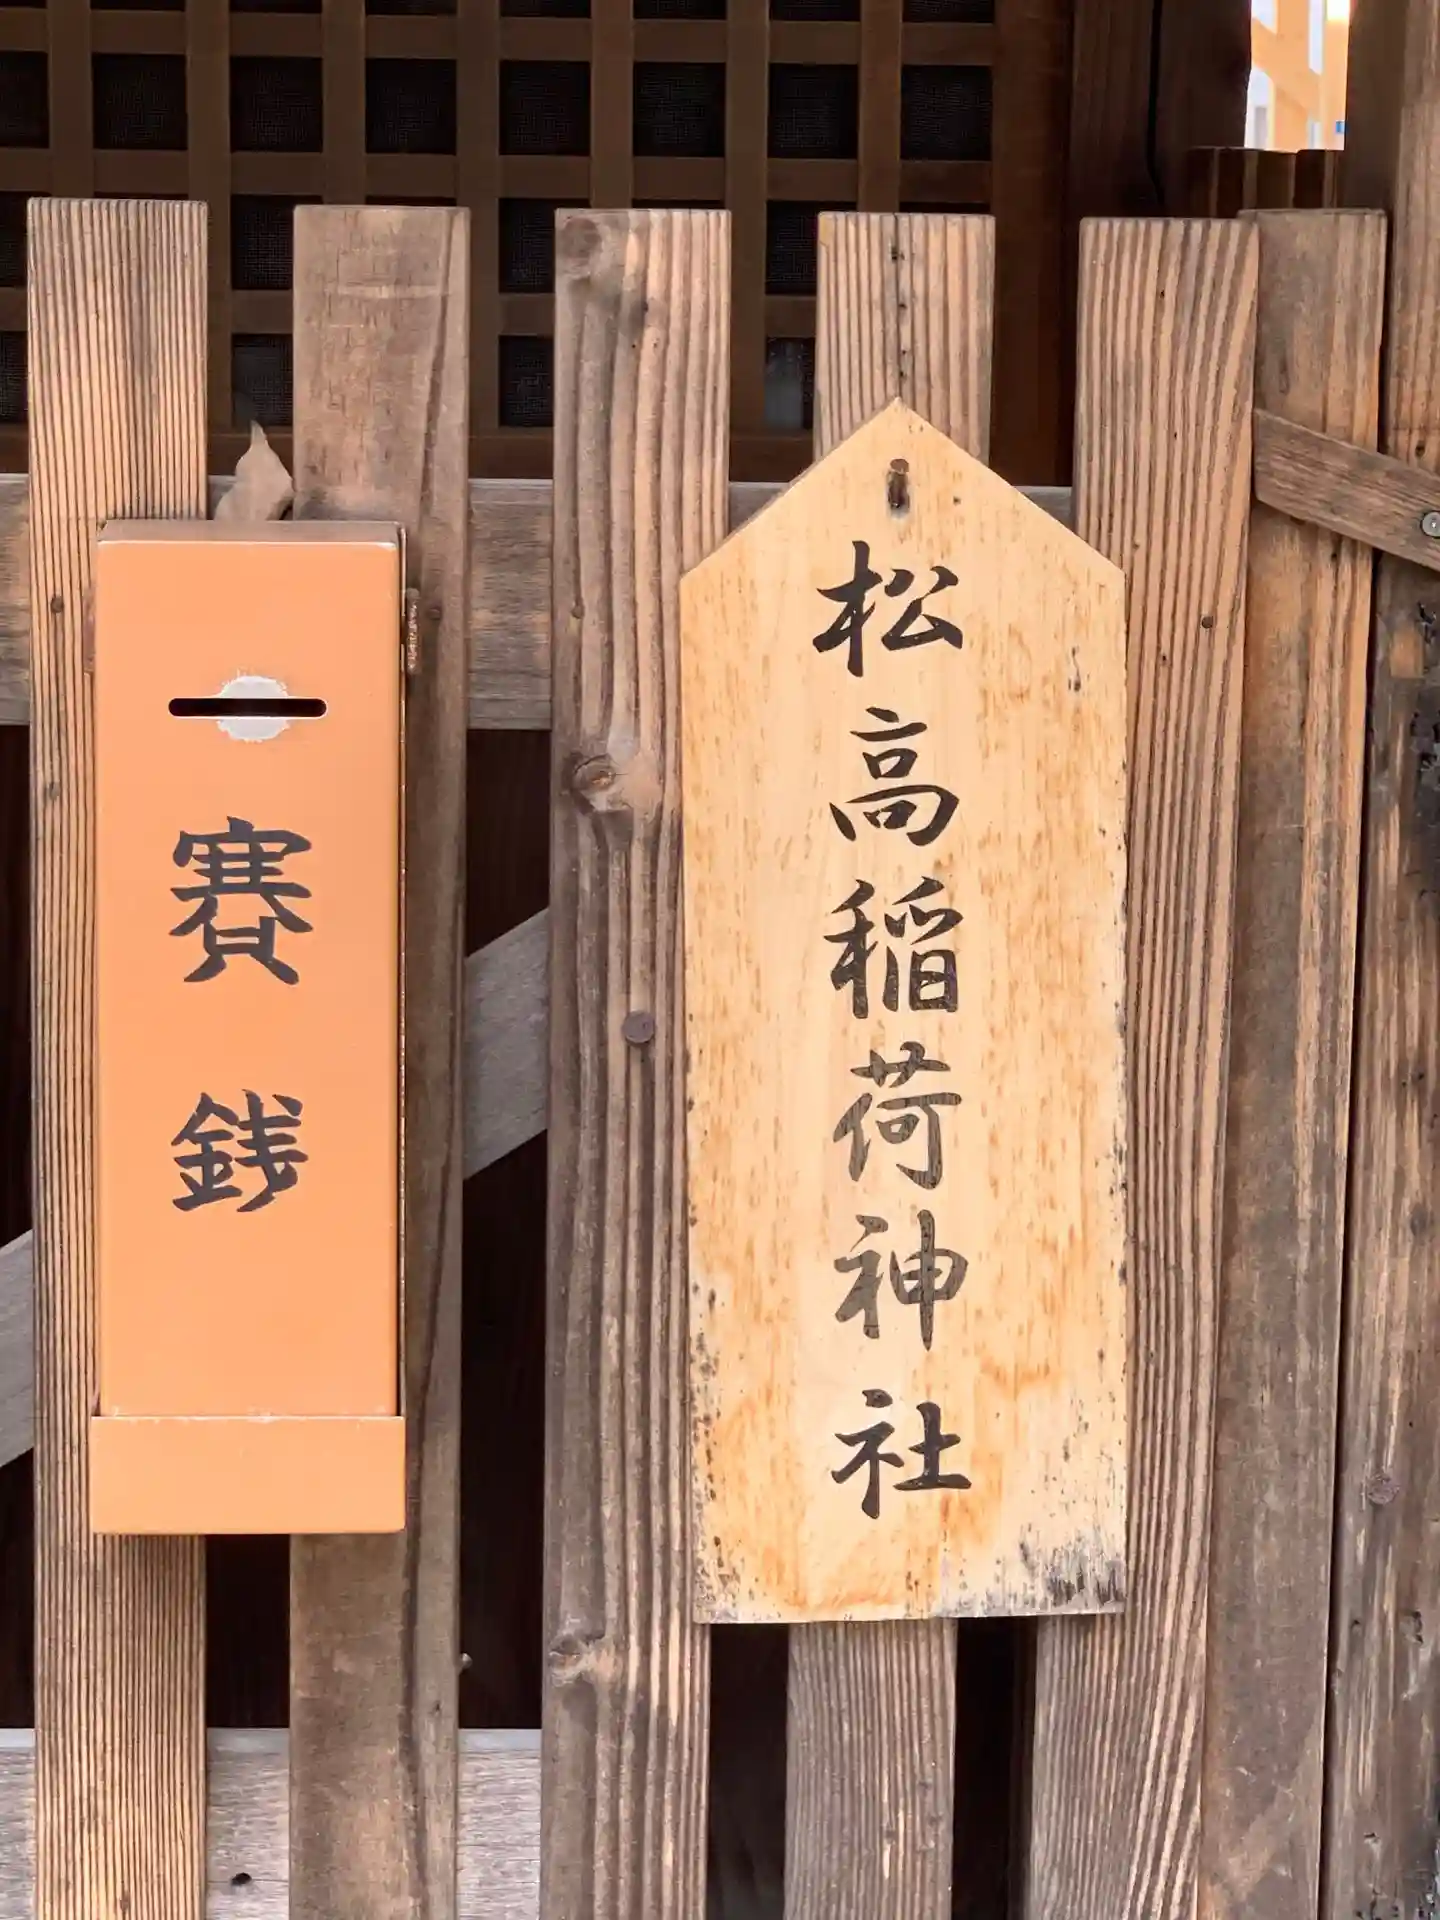 松高稲荷神社
賽銭